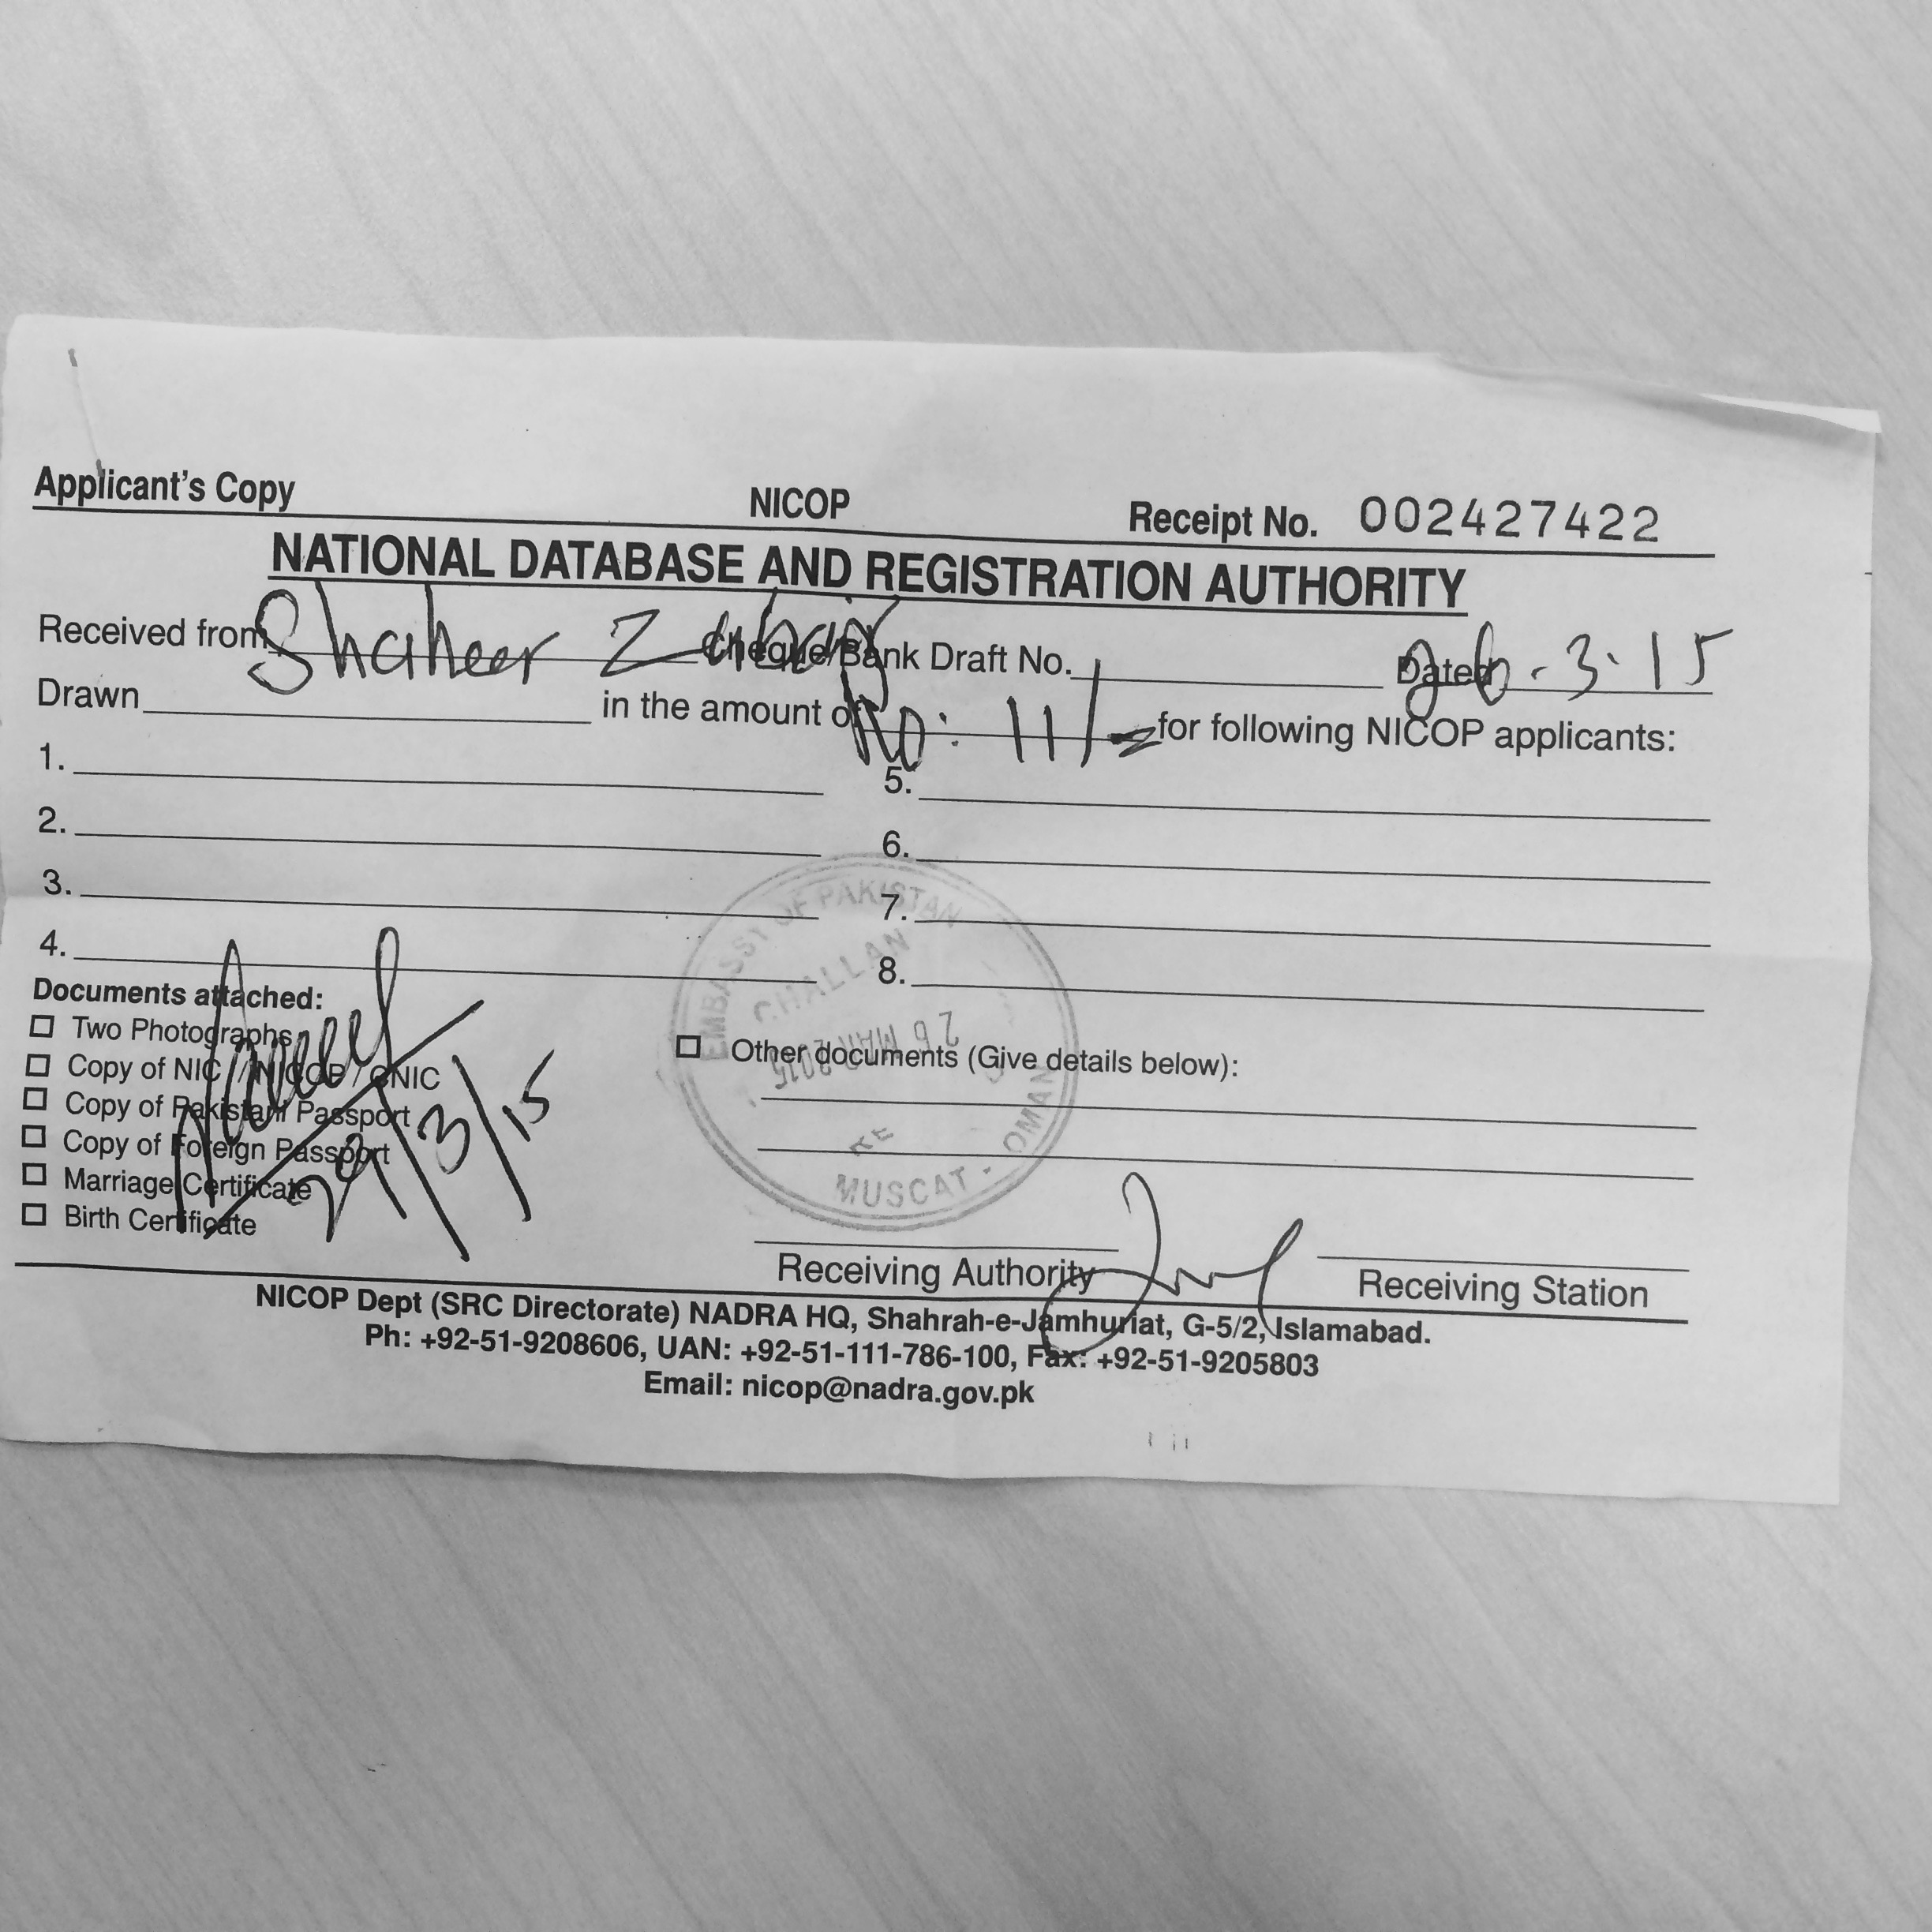 Applicant's Copy NICOP Receipt No. 002427422
NATIONAL DATABASE AND REGISTRATION AUTHORITY
Received from Shaheer Cheque/Bank Draft No. Dated 26.3.15
Drawn in the amount of Ro: 11/= for following NICOP applicants:
1. 5.
2. 6.
3. 7.
4. 8.
EMBASSY OF PAKISTAN
CHALLAN
26 MAR 2015
MUSCAT - OMAN
Documents attached:
Two Photographs
Copy of NIC / NICOP / CNIC
Copy of Pakistani Passport
Copy of Foreign Passport
Marriage Certificate
Birth Certificate
29/3/15
Other documents (Give details below):
Receiving Authority Receiving Station
NICOP Dept (SRC Directorate) NADRA HQ, Shahrah-e-Jamhuriat, G-5/2, Islamabad.
Ph: +92-51-9208606, UAN: +92-51-111-786-100, Fax: +92-51-9205803
Email: nicop@nadra.gov.pk